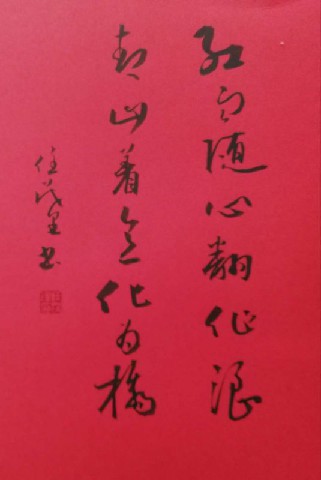 红雨随心翻作浪
青山着意化为桥
任茂呈书